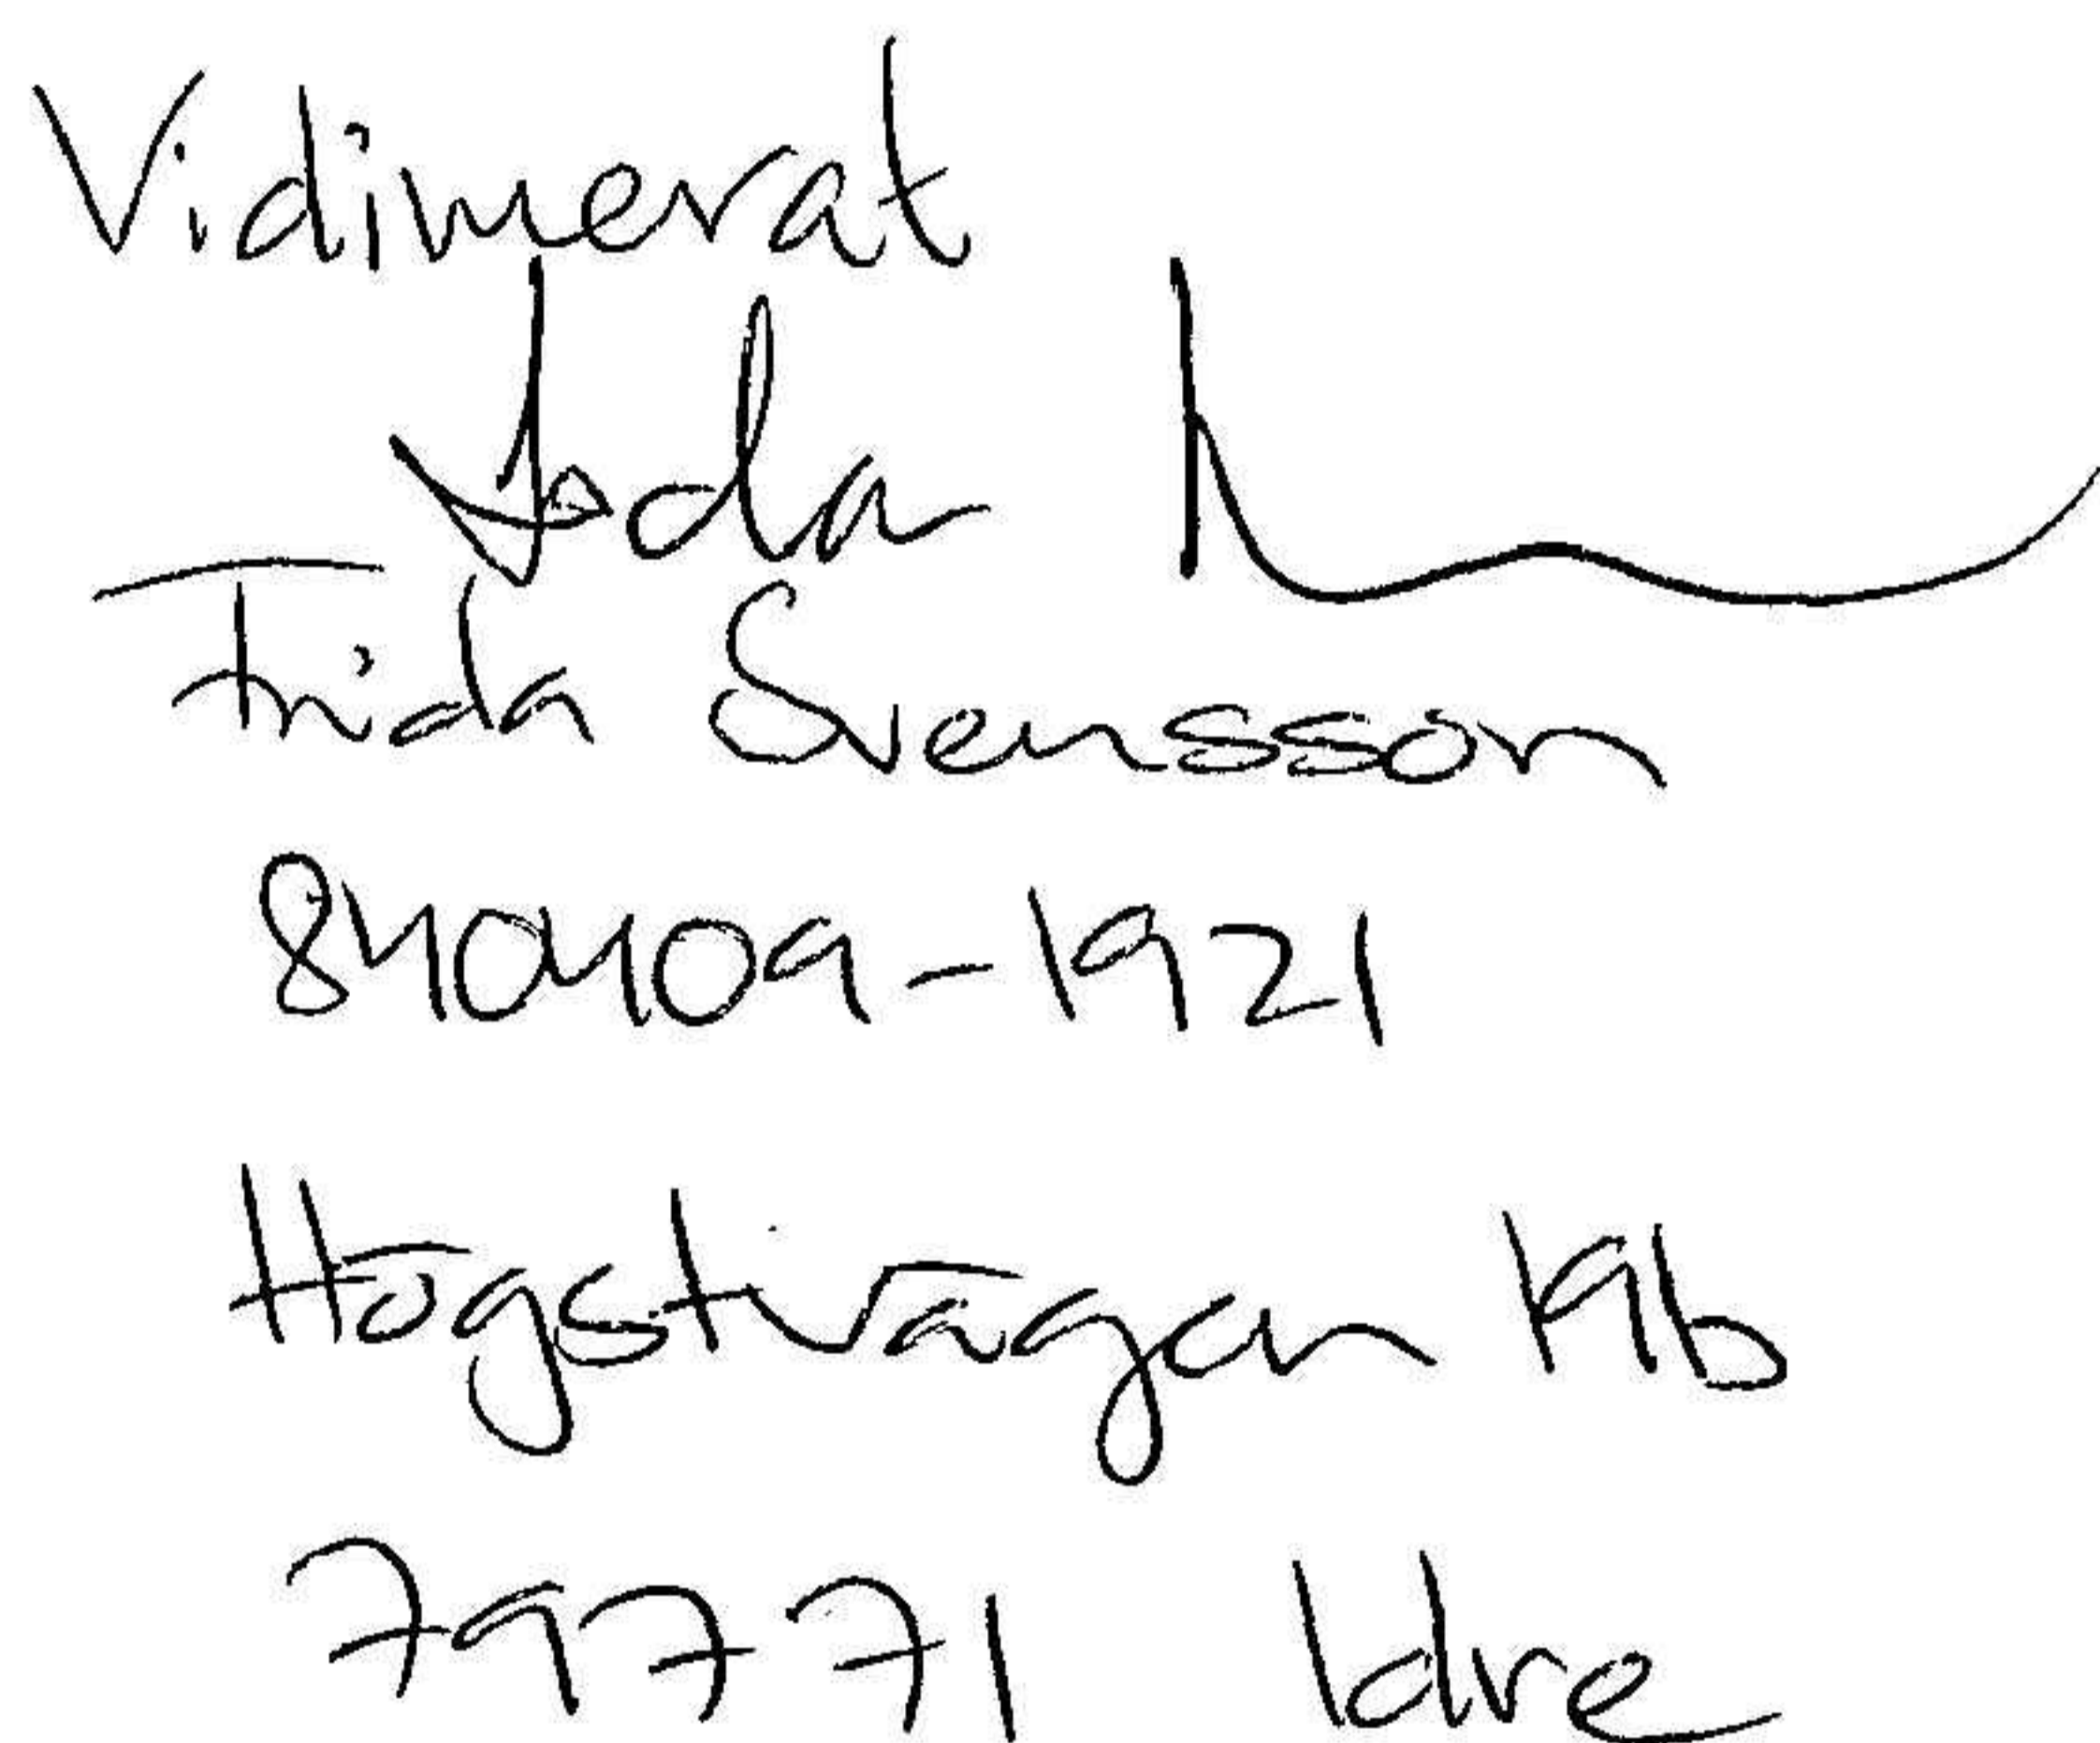 Vidimerat
Frida Svensson
840409-1921
Högstvägen 19b
79771 Idre